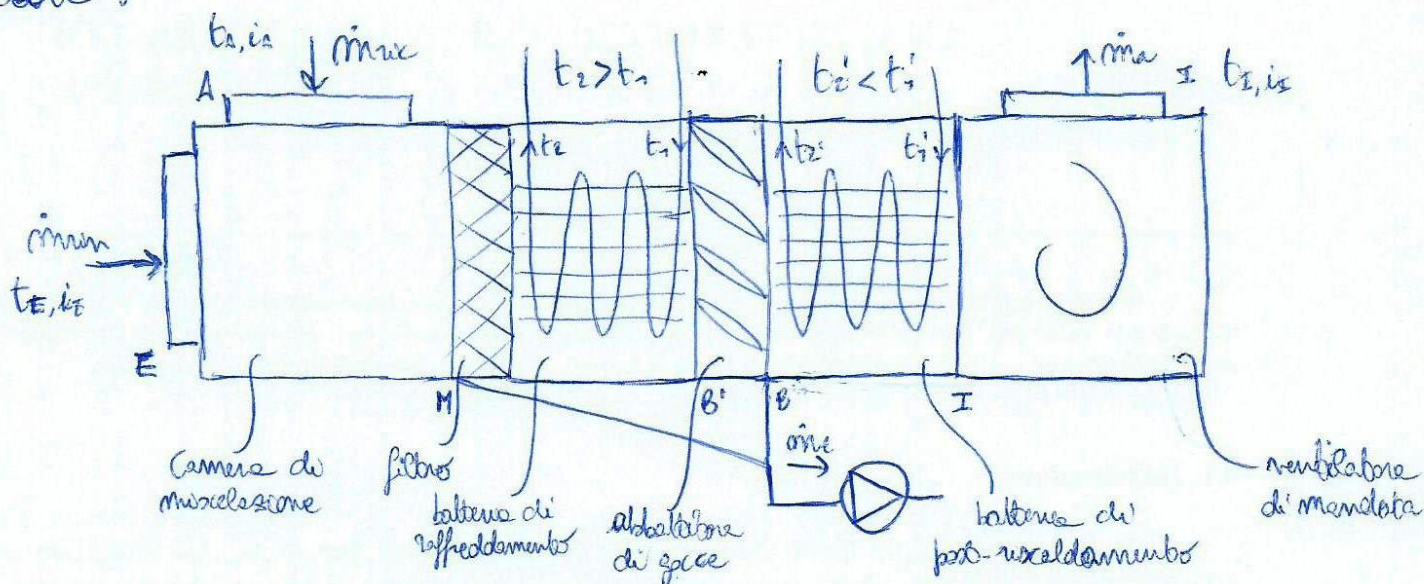 tA, iA
ṁric
t2 > t1
t2' < t1'
ṁa
I
tI, iI
A
t2
t1
t2'
t1'
ṁrin
tE, iE
E
M
B'
B
I
ṁc
Camera di
miscelazione
filtro
batteria di
raffreddamento
abbattitore
di gocce
batteria di
post-riscaldamento
ventilatore
di mandata